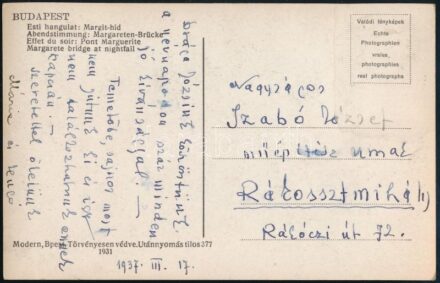 BUDAPEST
Esti hangulat: Margit-híd
Abendstimmung: Margareten-Brücke
Effet du soir: Pont Marguerite
Margarete bridge at nightfall
Valódi fényképek
Echte
Photographien
vraies
photographies
real photographs
Drága Józsink köszöntünk
a névnapodon száz minden
jó kívánsággal! —
Temetőbe, sajnos most
nem jutunk ki és így
nem találkozhatunk ennek
kapcsán. —
Szeretettel ölelünk
Mária és
Nagyságos
Szabó József
műépítész urnak
Rákossztmihály
Rákóczi út 72.
Modern, Bpest. Törvényesen védve. Utánnyomás tilos 377
1931
1937. III. 17.